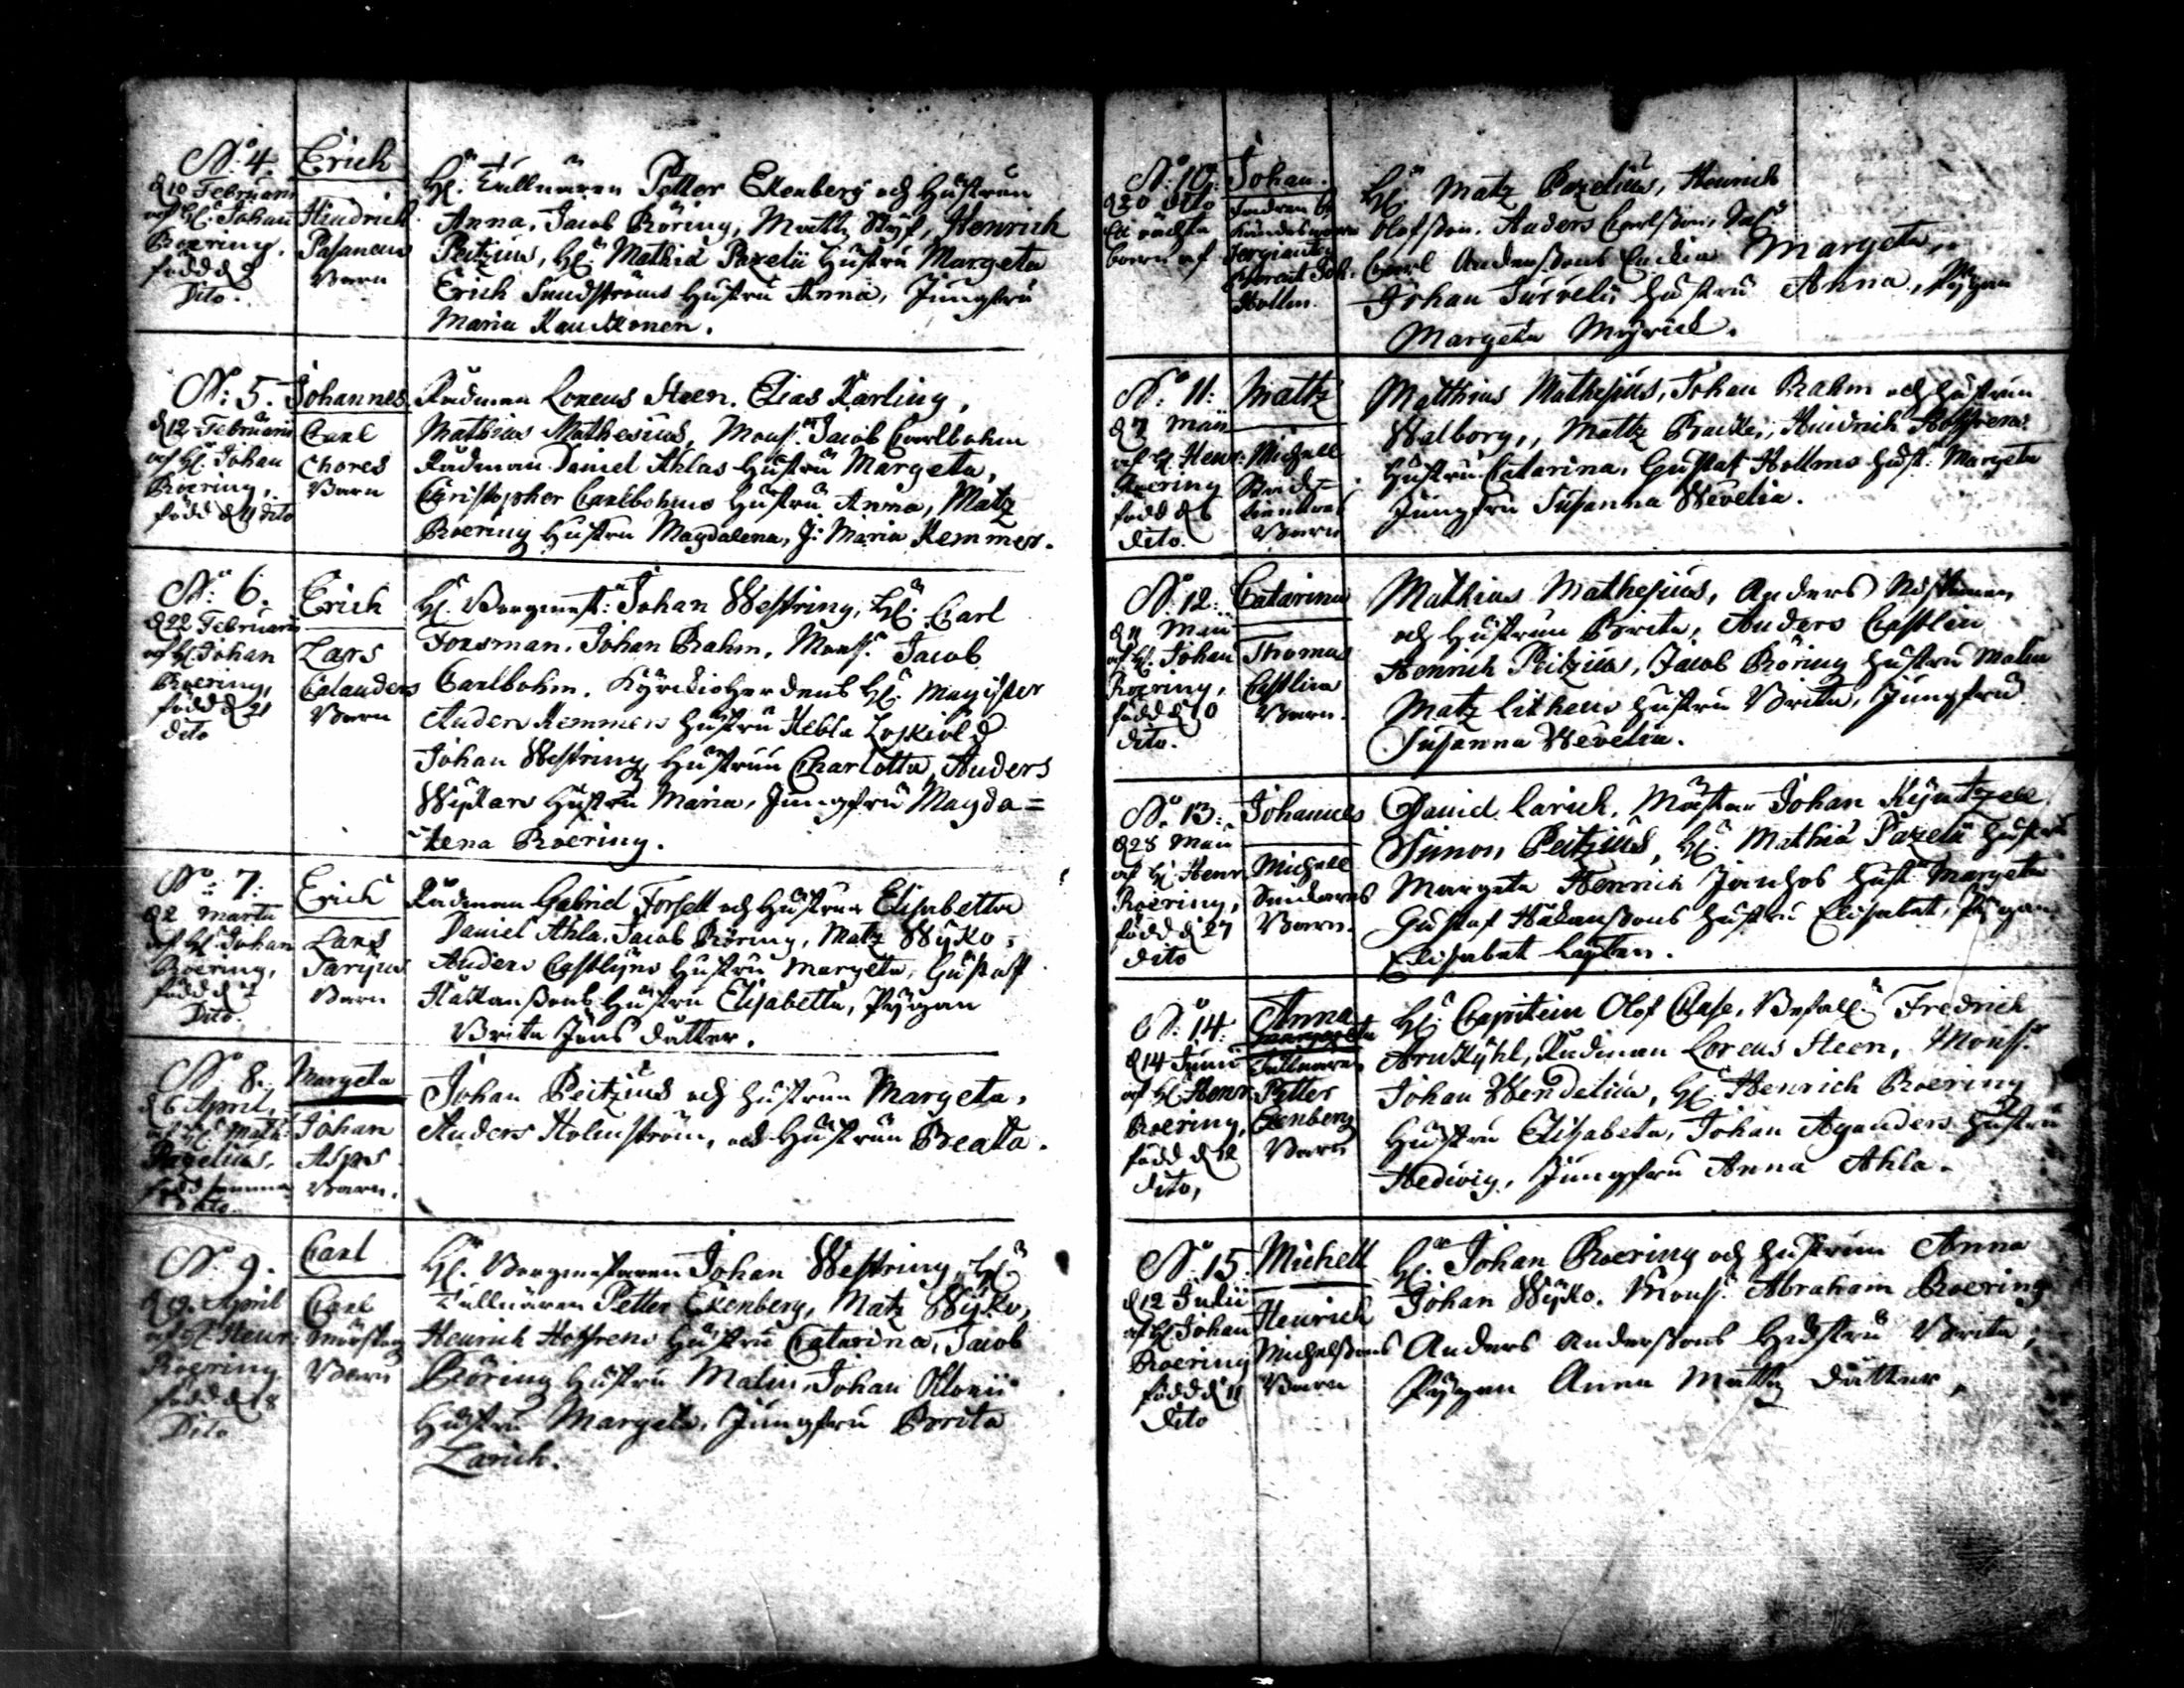 No. 4.
d 10 Februarii
af H. Johan
Roering.
född d 9
Dito.
Erich
Hindrich
Pasaneus
Barn
H. Tullnären Petter Ekenberg och Hustrun
Anna, Jacob Röring, Matts Styf, Henrich
Peitzius, H. Mathiæ Pazelii Hustru Margeta
Erich Sundströms Hustru Anna, Jungfru
Maria Kaukkonen.
No. 5.
d 12 Februarii
af H. Johan
Roering,
född d 11 dito
Johannes
Carl
Chores
Barn
Rådman Lorens Steen. Elias Karling,
Mathias Mathesius, Mons. Jacob Carlbohm
Rådman Daniel Ahlas Hustru Margeta,
Christopher Carlbohms Hustru Anna, Matz
Roering Hustru Magdalena, J: Maria Kemmer.
No. 6.
d 22 Februarii
af H. Johan
Roering,
född d 21
dito
Erich
Lars
Calanders
Barn
H. Borgmest: Johan Westring, H. Carl
Forsman. Johan Brahm, Mons. Jacob
Carlbohm. Kyrckioherdens H. Magister
Anders Kemmers Hustru Hebla
Johan Westring Hustrun Charlotta, Anders
Wykars Hustru Maria, Jungfru Magda=
lena Roering.
No. 7:
d 2 Martii
af H. Johan
Roering,
född d 2
Dito.
Erich
Lars
Barn
Rådman Gabriel Forsell och Hustrun Elisabetha
Daniel Ahla, Jacob Röring, Matz Wyko,
Anders Castlyns Hustru Margeta, Gustaff
Håkanssons Hustru Elisabetta, Pygan
Brita Jöns dotter.
No 8.
d 6 April,
af H. Math:
Pazelius,
född samma
dito.
Margeta
Johan
Asps
Barn.
Johan Peitzius och Hustrun Margeta,
Anders Holmström, och Hustrun Beata.
No. 9.
d 19. April
af H. Henr.
Roering
född d 18
Dito
Carl
Carl
Barn
H. Borgmestaren Johan Westring, H.
Tullnären Petter Ekenberg, Matz Wyko,
Henrich Hoffrens Hustru Catarina, Jacob
Röring Hustru Malin, Johan
Hustru Margeta, Jungfru Brita
Larich.
No. 10.
d 20 dito
barn af
Johan.
H. Matz Pazelius, Henrich
Olofsson, Anders Carlsson,
Carl Anderssons Enckia Margeta,
Johan Hustru Anna, Pygan
Margeta
No. 11:
d 7 Maii
af H. Henr:
Roering
född d 6
dito.
Mattz
Michell
Barn
Matthias Mathesius, Johan Brahm och Hustrun
Walborg, Mattz Hindrich Hoffrens
Hustru Catarina, Gustaf Hollms Hust: Margeta
Jungfru Susanna Wevelia.
No. 12:
d 11 Maii
af H. Johan
Roering,
född d 10
dito.
Catarina
Thomas
Castlin
Barn.
Mathias Mathesius, Anders
och Hustrun Brita, Anders Castlin
Henrich Peitzius, Jacob Röring Hustru Malin
Matz Lithens Hustru Brita, Jungfru
Susanna Wevelia.
No. 13:
d 28 Maii
af H. Henr.
Roering,
född d 27
dito
Johannes
Michell
Barn.
Daniel Larich, Mäster Johan
Simon Peitzius, H. Mathiæ Pazelii Hustru
Margeta Henrich Hust. Margeta
Gustaf Håkanssons Hustru Elisabet, Pygan
Elisabet
No. 14:
d 14 Junii
af H. Henr.
Roering,
född d 12
dito,
Anna
Tullnären
Petter
Ekenberg
Barn
H. Capitein Olof Befall. Fredrich
Rådman Lorens Steen, Mons.
Johan Wendelius, H. Henrich Roering
Hustru Elisabeta, Johan Aganders Hustru
Hedwig, Jungfru Anna Ahla.
No. 15
d 12 Julii
af H. Johan
Roering
född d 11
dito
Michell
Henrich
Michelssons
Barn
H. Johan Roering och Hustrun Anna
Johan Wyko. Mons. Abraham Roering
Anders Anderssons Hustru Brita,
Pygan Anna Matts dotter,